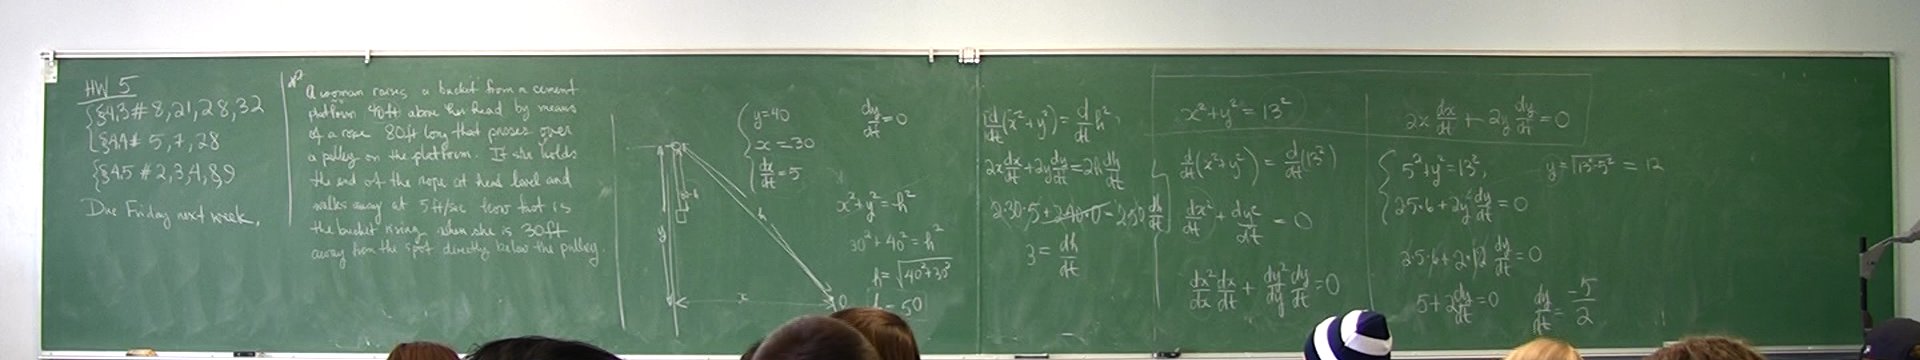 HW 5
§4.3 # 8, 21, 28, 32
§4.4 # 5, 7, 28
§4.5 # 2, 3, 4, 8, 9
Due Friday next week.
A woman raises a bucket from a cement
platform 40ft above her head by means
of a rope 80ft long that passes over
a pulley on the platform. If she holds
the end of the rope at head level and
walks away at 5 ft/sec how fast is
the bucket rising when she is 30ft
away from the spot directly below the pulley.
y
h
x
y = 40
x = 30
dx/dt = 5
dy/dt = 0
x² + y² = h²
30² + 40² = h²
h = √40² + 30²
h = 50
d/dt (x² + y²) = d/dt h²,
2x dx/dt + 2y dy/dt = 2h dh/dt
2·30·5 + 2·40·0 = 2·50 dh/dt
3 = dh/dt
x² + y² = 13²
d/dt (x² + y²) = d/dt (13²)
dx²/dt + dy²/dt = 0
dx²/dx dx/dt + dy²/dy dy/dt = 0
2x dx/dt + 2y dy/dt = 0
5² + y² = 13²,
y = √13² - 5² = 12
2·5·6 + 2y dy/dt = 0
2·5·6 + 2·12 dy/dt = 0
5 + 2 dy/dt = 0
dy/dt = -5/2